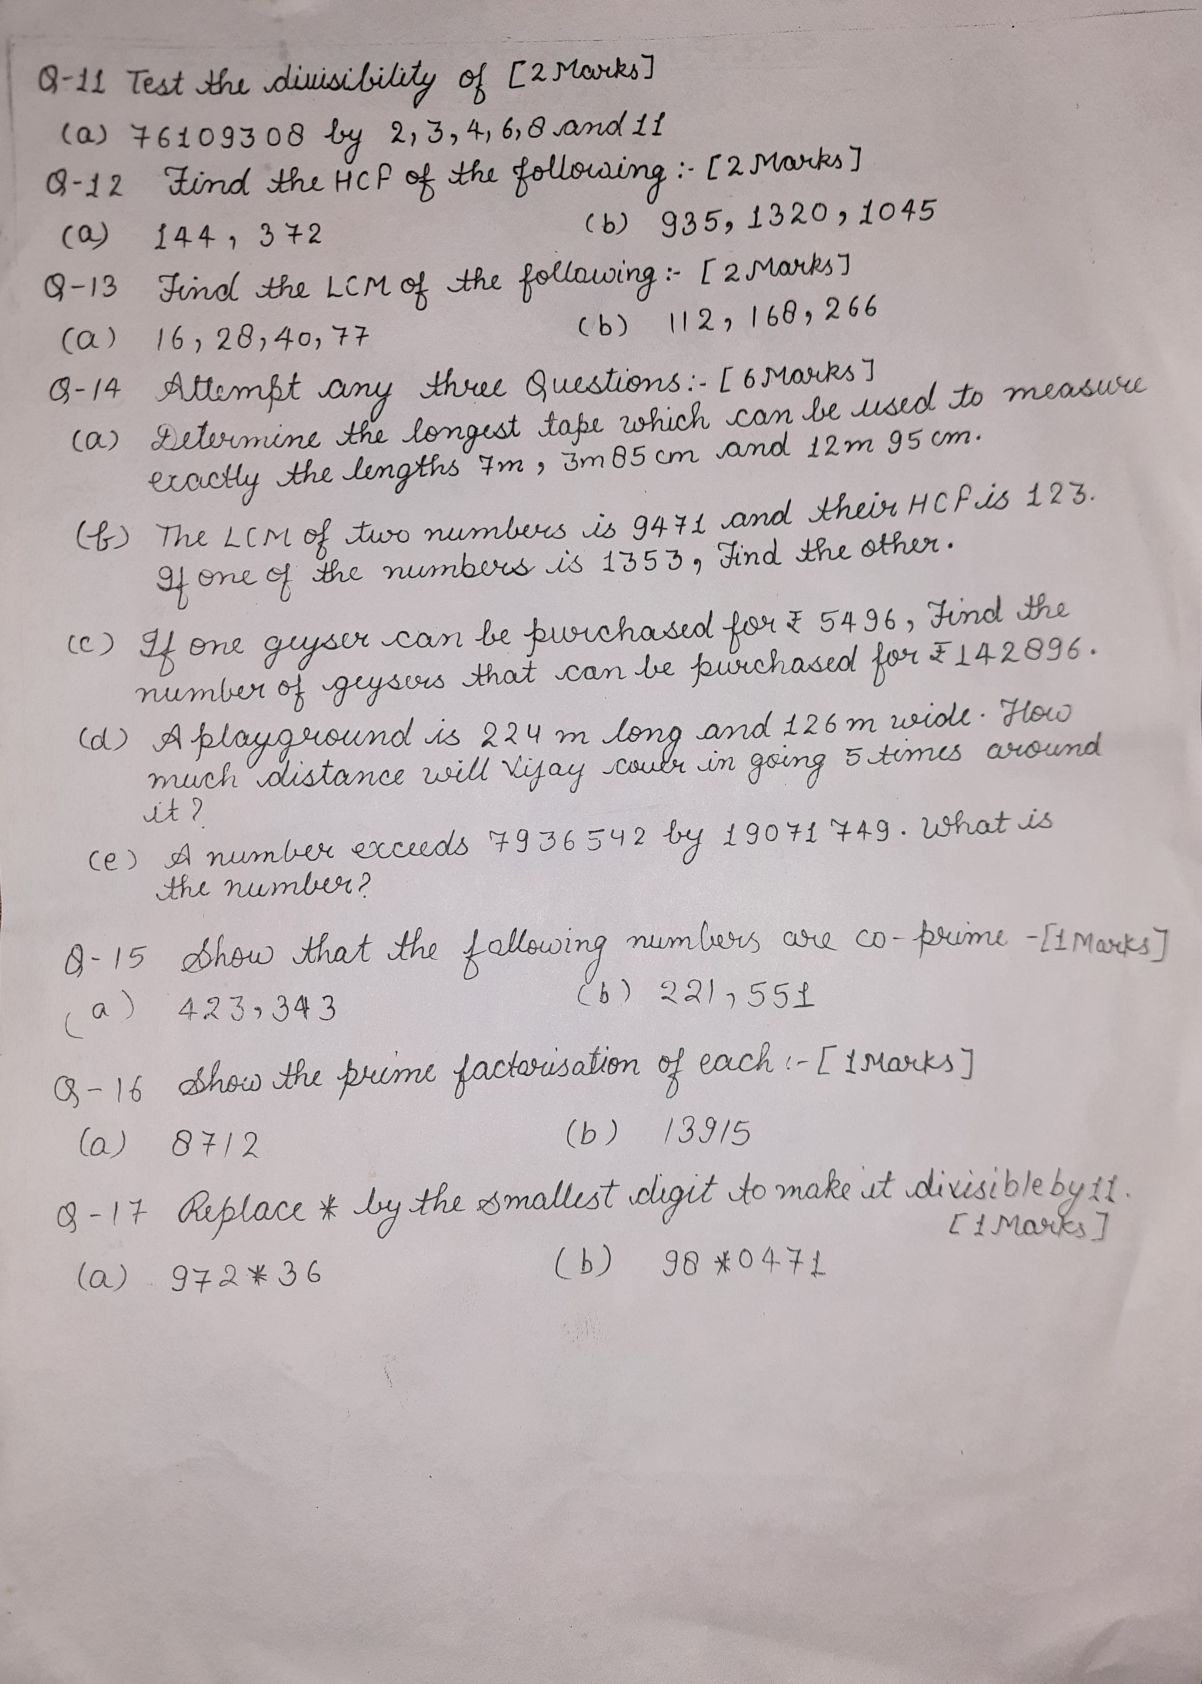 Q-11 Test the divisibility of [2 Marks]
(a) 76109308 by 2, 3, 4, 6, 8 and 11
Q-12 Find the HCF of the following :- [2 Marks]
(a) 144, 372 (b) 935, 1320, 1045
Q-13 Find the LCM of the following :- [2 Marks]
(a) 16, 28, 40, 77 (b) 112, 168, 266
Q-14 Attempt any three Questions :- [6 Marks]
(a) Determine the longest tape which can be used to measure
exactly the lengths 7m, 3m 85 cm and 12m 95 cm.
(b) The LCM of two numbers is 9471 and their HCF is 123.
If one of the numbers is 1353, Find the other.
(c) If one geyser can be purchased for ₹ 5496, Find the
number of geysers that can be purchased for ₹142896.
(d) A playground is 224 m long and 126 m wide. How
much distance will Vijay cover in going 5 times around
it?
(e) A number exceeds 7936542 by 19071749. What is
the number?
Q-15 Show that the following numbers are co-prime -[1 Marks]
(a) 423, 343 (b) 221, 551
Q-16 Show the prime factorisation of each :- [1 Marks]
(a) 8712 (b) 13915
Q-17 Replace * by the smallest digit to make it divisible by 11.
[1 Marks]
(a) 972*36 (b) 98*0471